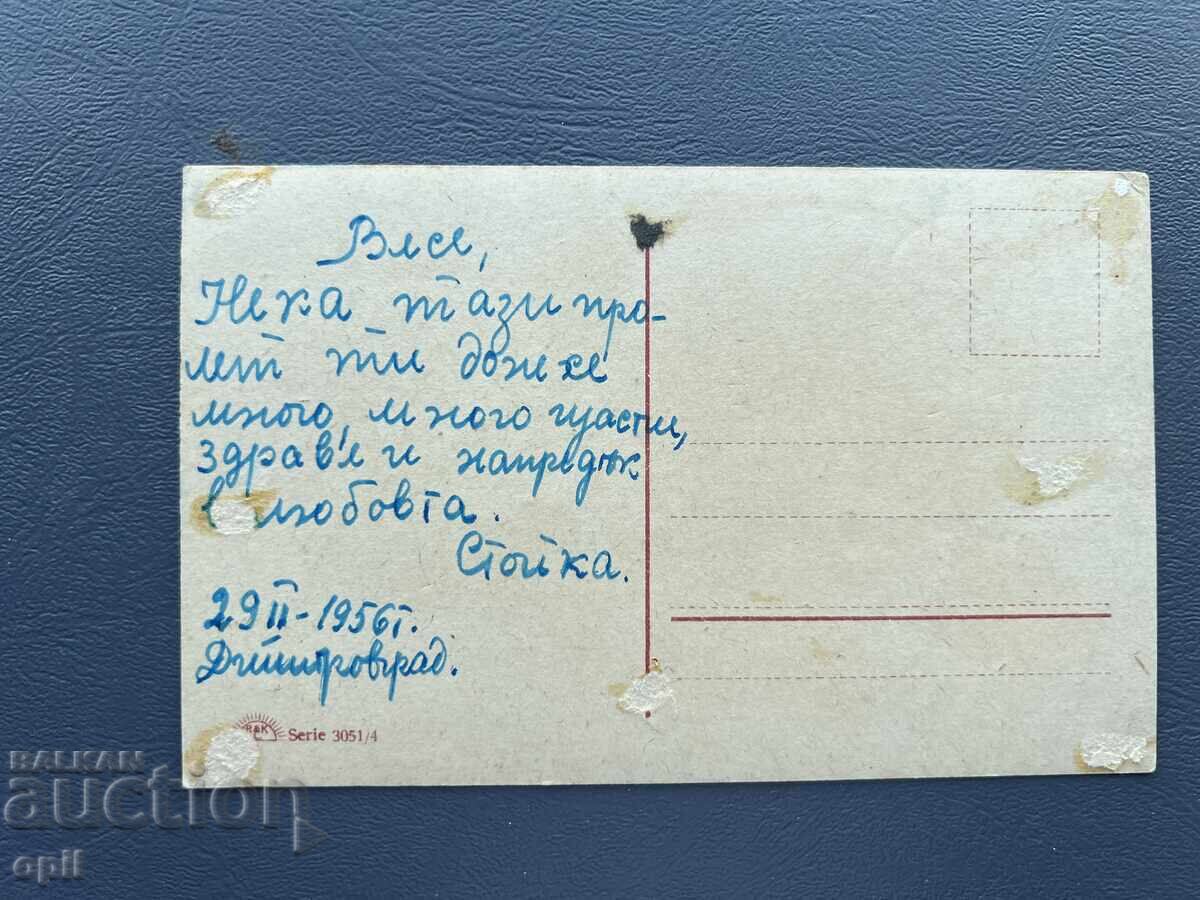 Нека тази про-
лет ти донесе
много, много щасти,
здраве и напредък
в любовта.
Стойка.
29 II - 1956 г.
Димитровград.
R&K Serie 3051/4
BALKAN
auction
opil